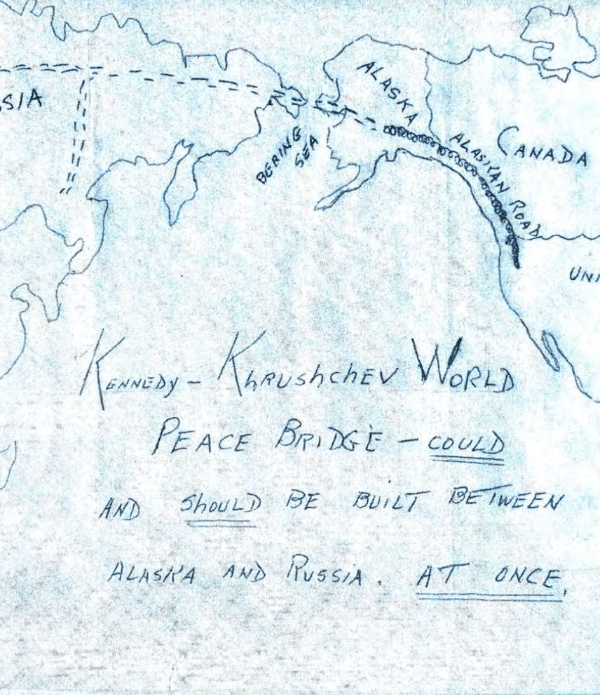 SSIA
ALASKA
BERING
SEA
ALASKAN ROAD
CANADA
UNI
KENNEDY - KHRUSHCHEV WORLD
PEACE BRIDGE - COULD
AND SHOULD BE BUILT BETWEEN
ALASKA AND RUSSIA. AT ONCE.